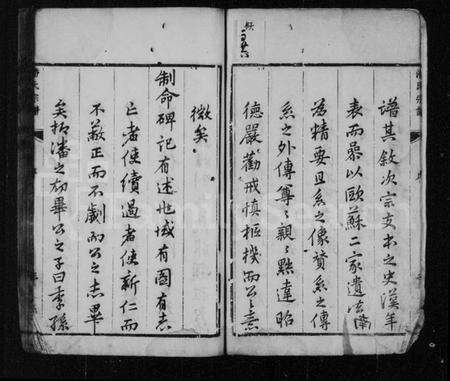 譜其敘次宗支本之史漢年
表而參以歐蘇二家遺法簡
為精要且系之像贊系之傳
系之外傳尊〻親〻黜違昭
德嚴勸戒慎樞機而公之意
微矣
制命碑記有述也域有圖有志
亡者使續過者使新仁而
不敝正而不劌而公之志畢
矣抑潘之初畢公之子曰季孫